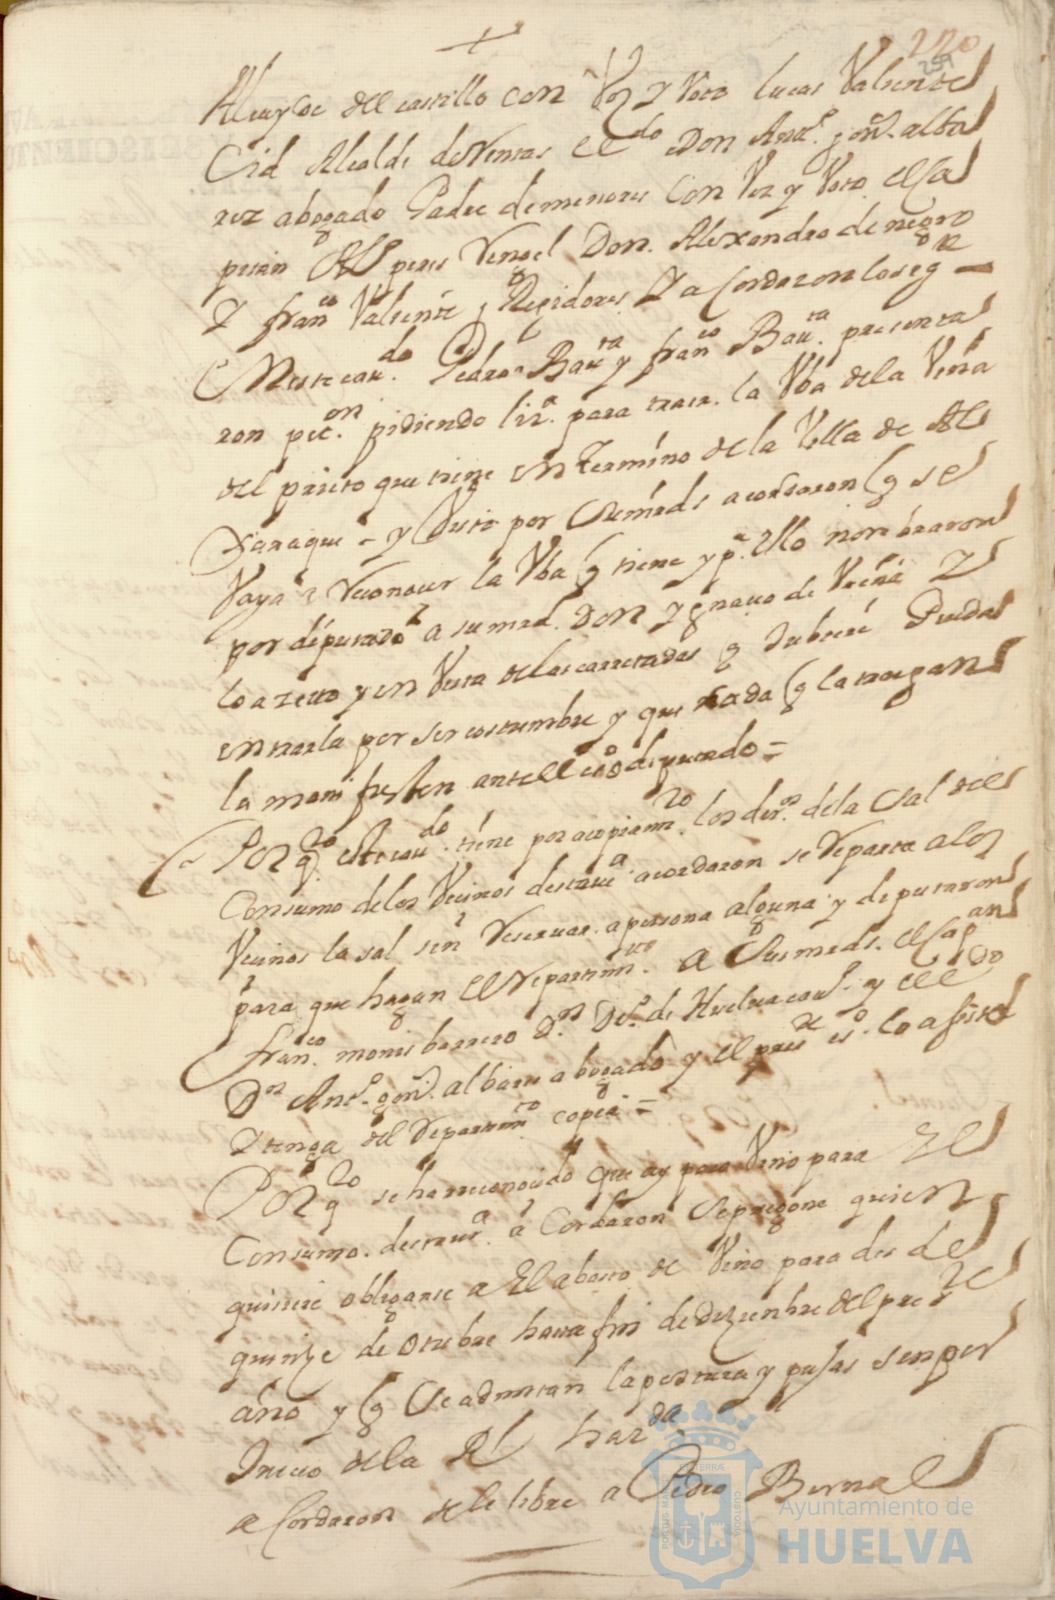 220
259
Alcayde del castillo con Voz y Voto lucas Valiente
Cid Alcalde de Ventas el ldo Don Anto. gonz. alba
rez abogado Padre de menores con Voz y Voto el ca
pitan Alo peres Vengel Don. Alexandro de negro
Y franco Valiente, Regidores Y a Cordaron lo sigte
En este cavdo. Pedro Bauta y franco Bauta. presenta
ron peton. pidiendo liza. para traer. la Vba de la Viña
del prieto que tiene en termino de la Villa de Al
Xaraque = y Visto por Sus mrds acordaron q se
Vaya a Reconocer la Vba q tiene y pa. Ello nombraron
por diputado a su md. Don Ygnacio de Vreña Y
lo azetto y en Vista de las carretadas q hubiere Puedan
entrarla por ser costumbre y que cada q la traigan
la manifiesten ante el cavo diputado =
Por qto este cavdo. tiene por acopiamto. los deros. de la Sal del
Consumo de los Vecinos desta va. acordaron se Reparta a los
Vecinos la sal sin Reservar. a persona alguna y deputaron
para que hagan el Repartimto. a Sus mrds. el capan
franco. monis barrero Dn Do. de Huelva cavo. y el ldo
Dn Anto. gonz. albares abogado y el preste esno. lo asista
Y tenga del Repartimto copia =
Por qto se ha reconocido que ay poco Vino para El
Consumo. desta va. a Cordaron Se pregone quien
quisiere obligarse a El abasto de Vino para des de
quinze de Otubre hasta fin de dizienbre del preste
año y q Se admitan las posturas y pujas sin per
Juicio de la Rl hazda
a Cordaron se le libre a Pedro Bernal
Ayuntamiento de
HUELVA